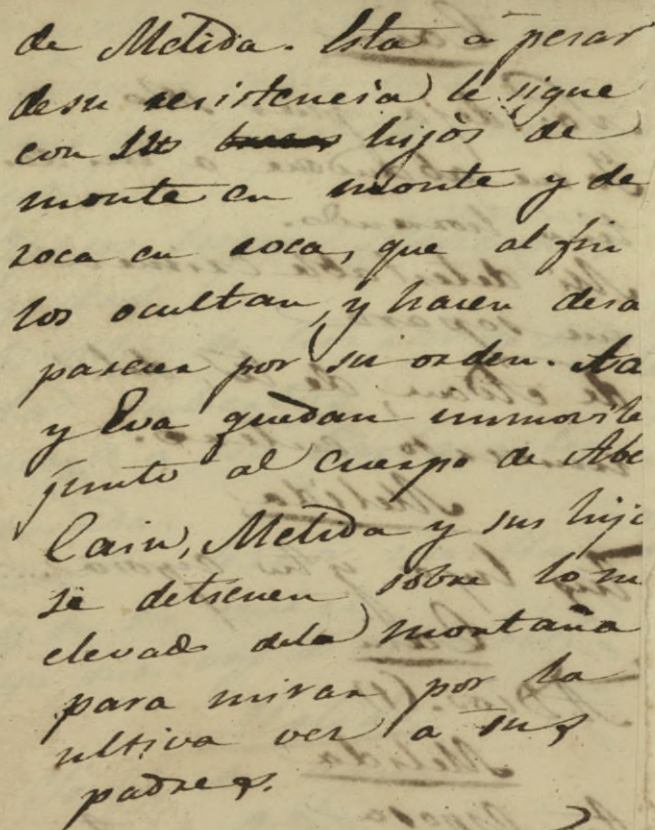 de Metida. Esta a pesar
desu resistencia le sigue
con sus hijos de
monte en monte y de
roca en roca, que al fin
los ocultan, y hacen desa
parecer por su orden. Ada
y Eva quedan inmovile
junto al cuerpo de Abe
Cain, Metida y sus hijo
se detienen sobre lo m
elevado dela montaña
para mirar por la
ultiva vez a sus
padres.